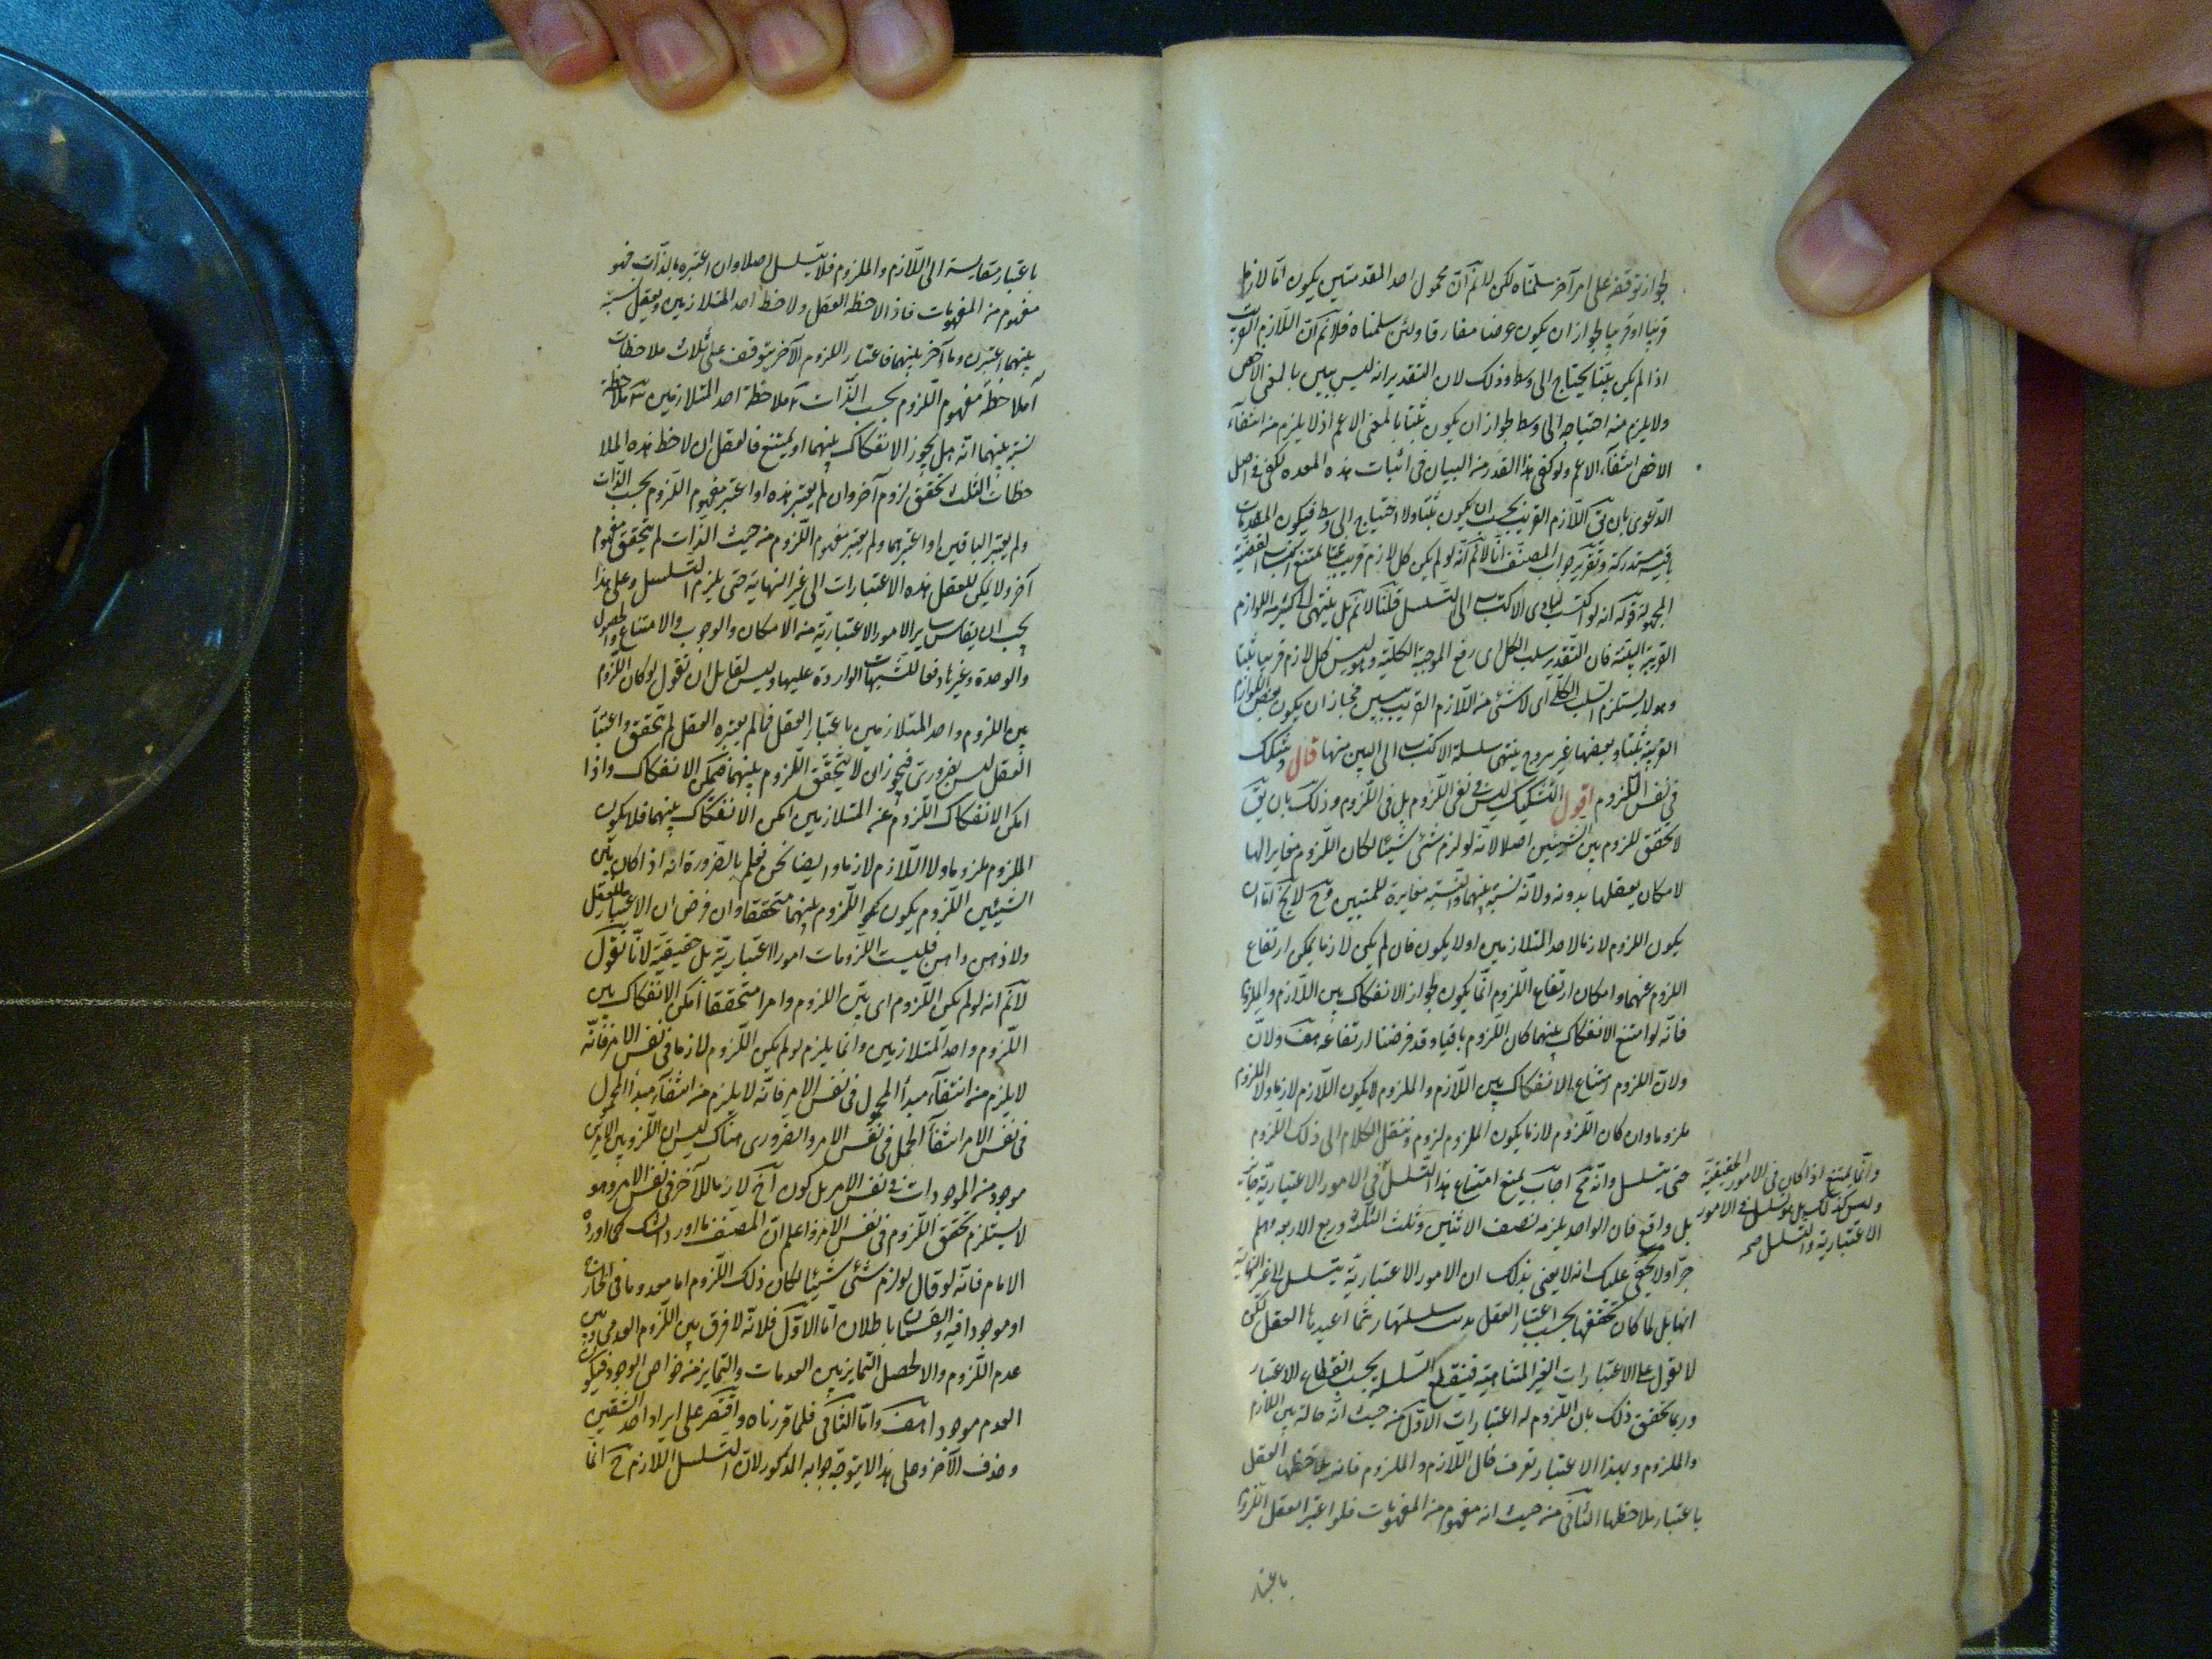 لجواز توقفه على امر آخر سلمناه لكن لا نم ان محمول احد المقدمتين يكون اما لازما
قريبا او قريبا لجواز ان يكون عرضا مفارقا ولئن سلمناه فلا نم ان اللازم القريب
اذا لم يكن بينا يحتاج الى وسط وذلك لان التقدير انه ليس ببين بالمعنى الاخص
ولا يلزم منه احتياجه الى وسط لجواز ان يكون بينا بالمعنى الاعم اذ لا يلزم من انتفاء
الاخص انتفاء الاعم ولو كفى هذا القدر من البيان فى اثبات هذه المقدمة لكفى فى اصل
الدعوى بان يق اللازم القريب يجب ان يكون بينا ولا احتياج الى وسط فيكون المقدمات
باقية مستدركة وتقرير جواب المصنف انا لا نم انه لو لم يكن كل لازم قريب بينا لمتنع اكتساب القضية
المجهولة قوله انه لو اكتسب لتادى الاكتساب الى التسلسل قلنا لا نم بل ينتهى الى كثير من اللوازم
القريبة البينة فان التقدير سلب الكل اى رفع الموجبة الكلية وهو ليس كل لازم قريب بينا
وهو لا يستلزم السلب الكلى اى لا شئ من اللازم القريب ببين فجاز ان يكون بعض اللوازم
القريبة بينا وبعضها غير بين وح ينتهى سلسلة الاكتساب الى البين منها قال وشكك
فى نفس اللزوم اقول التشكيك ليس فى نفس اللزوم بل فى اللزوم وذلك بان يق
لا تحقق للزوم بين الشيئين اصلا لانه لو لزم شئ شيئا لكان اللزوم مغايرا لهما
لامكان تعقلهما بدونه ولانه نسبة بينهما والنسبة مغايرة للمنتسبين وح لا يخ اما ان
يكون اللزوم لازما لاحد المتلازمين او لا يكون فان لم يكن لازما يمكن ارتفاع
اللزوم عنهما وامكان ارتفاع اللزوم انما يكون بجواز الانفكاك بين اللازم والملزوم
فانه لو امتنع الانفكاك بينهما كان اللزوم باقيا وقد فرضنا ارتفاعه هف ولان
ولان اللزوم امتناع الانفكاك بين اللازم والملزوم لا يكون اللازم لازما ولا الملزوم
ملزوما وان كان اللزوم لازما يكون الملزوم لزوم وننقل الكلام الى ذلك اللزوم
حتى يتسلسل وانه مح اجاب بمنع امتناع هذا التسلسل فى الامور الاعتبارية جايز
بل واقع فان الواحد يلزمه نصف الاثنين وثلث الثلثة وربع الاربعة وهلم
جرا ولا يخفى عليك انه لا يعنى بذلك ان الامور الاعتبارية يتسلسل الى غير النهاية
انها بل لما كان تحققها بحسب اعتبار العقل سلسلتها العقل لكن
لا يقوى على الاعتبارات الغير المتناهية فينقطع السلسلة بحسب انقطاع الاعتبار
وربما تحقق ذلك بان اللزوم له اعتبارات الاول من حيث انه حالة بين اللازم
والملزوم وبهذا الاعتبار تعرف حال اللازم والملزوم فانه يلاحظها العقل
باعتبار ملاحظهما الثانى من حيث انه مفهوم من المفهومات فلو اعتبر العقل اللزوم
باعتبار
وانما يمتنع اذا كان فى الامور الحقيقية
وليس كذلك بل هو تسلسل فى الامور
الاعتبارية والتسلسل صح
باعتبار مقايسة الى اللازم والملزوم فلا تسلسل اصلا وان اعتبره بالذات فهو
مفهوم من المفهومات فاذا لاحظه العقل ولاحظ احد المتلازمين وتعقل نسبة
بينهما اعتبر لزوما آخر بينهما فاعتبار اللزوم الآخر يتوقف على ثلاث ملاحظات
آ ملاحظة مفهوم اللزوم بحسب الذات ب ملاحظة احد المتلازمين ج ملاحظة
نسبة بينهما انه هل يجوز الانفكاك بينهما او يمتنع فالعقل ان لاحظ هذه الملا
حظات الثلث تحقق لزوم آخر وان لم يعتبر هذه او اعتبر مفهوم اللزوم بحسب الذات
ولم يعتبر الباقيين او اعتبرهما ولم يعتبر مفهوم اللزوم من حيث الذات لم يتحقق مفهوم
آخر ولا يمكن للعقل هذه الاعتبارات الى غير النهاية حتى يلزم التسلسل وعلى هذا
يجب ان يقاس ساير الامور الاعتبارية من الامكان والوجوب والامتناع والحصول
والوحدة وغيرها دفعا للشبهات الواردة عليها وليس لقايل ان تقول لو كان اللزوم
بين اللزوم واحد المتلازمين باعتبار العقل فما لم يعتبره العقل لم يتحقق واعتبار
العقل ليس بضرورى فيجوز ان لا يتحقق اللزوم بينهما فيمكن الانفكاك واذا
امكن الانفكاك اللزوم عن المتلازمين امكن الانفكاك بينهما فلا يكون
الملزوم ملزوما ولا اللازم لازما وايضا نحن نعلم بالضرورة انه اذا كان بين
الشيئين اللزوم يكون اللزوم بينهما متحققا وان فرض ان لا اعتبار للعقل
ولا ذهن ذاهن فليست اللزومات امورا اعتبارية بل حقيقية لانا نقول
لا نم انه لو لم يكن اللزوم اى بين اللزوم واحد متحققا امكن الانفكاك بين
اللزوم واحد المتلازمين وانما يلزم لو لم يكن اللزوم لازما فى نفس الامر فانه
لا يلزم من انتفاء مبدأ المحمول فى نفس الامر فانه لا يلزم من انتفاء مبدأ المحمول
فى نفس الامر انتفاء الحمل فى نفس الامر والضرورى هناك ليس ان اللزوم بين الامرين
موجود من الموجودات فى نفس الامر بل كون آخ لازما للآخر فى نفس الامر وهو
لا يستلزم تحقق اللزوم فى نفس الامر واعلم ان المصنف ما اورد الشك كما اورده
الامام فانه لو قال لو لزم شئ شيئا لكان ذلك اللزوم اما معدوما فى الخارج
او موجودا فيه والقسمان باطلان اما الاول فلانه لا فرق بين اللزوم العدمى وبين
عدم اللزوم والا لحصل التمايز بين العدمات والتمايز من خواص الوجود فيكون
العدم موجودا هف واما الثانى فلما قررناه واقتصر على ايراد احد الشقين
وحذف الآخر وعلى هذا لا يتوجه جوابه المذكور لان التسلسل اللازم ح انما